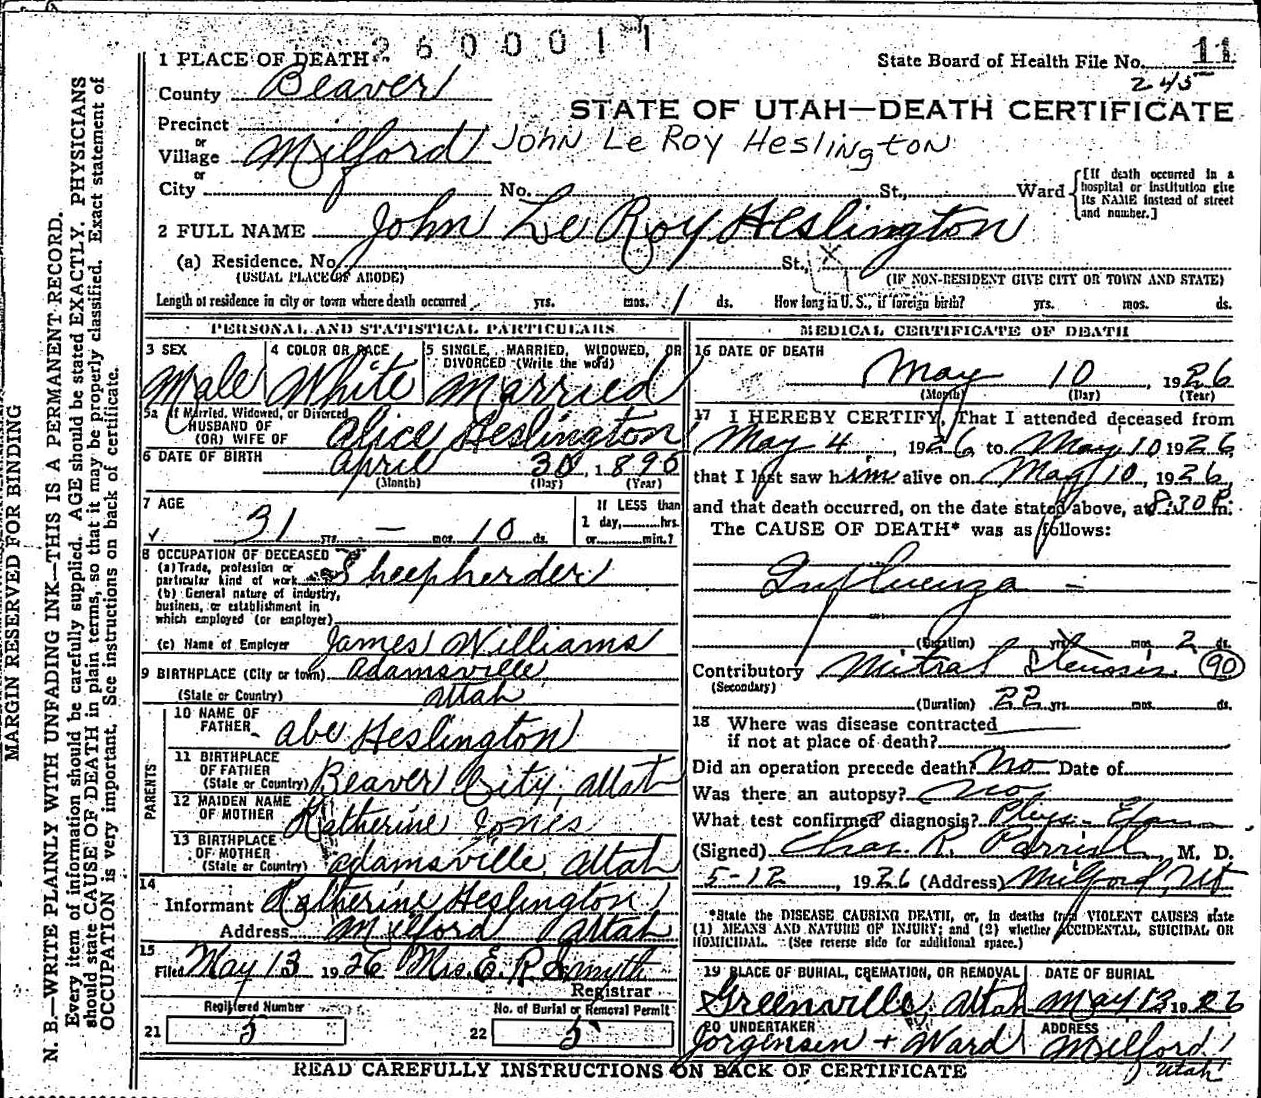 2600011
11
State Board of Health File No.
245
1 PLACE OF DEATH
County Beaver
STATE OF UTAH—DEATH CERTIFICATE
Precinct
or
Village Milford John Le Roy Heslington
or
City No. St., Ward
[If death occurred in a hospital or institution give its NAME instead of street and number.]
2 FULL NAME John Le Roy Heslington
(a) Residence. No. St., X
(USUAL PLACE OF ABODE) (IF NON-RESIDENT GIVE CITY OR TOWN AND STATE)
Length of residence in city or town where death occurred yrs. mos. 1 ds. How long in U. S., if foreign birth? yrs. mos. ds.
PERSONAL AND STATISTICAL PARTICULARS
3 SEX Male
4 COLOR OR RACE White
5 SINGLE, MARRIED, WIDOWED, OR DIVORCED (Write the word) Married
5a If Married, Widowed, or Divorced
HUSBAND OF
(OR) WIFE OF Alice Heslington
6 DATE OF BIRTH April 30, 1890
(Month) (Day) (Year)
7 AGE
31 yrs. — mos. 10 ds.
If LESS than
1 day, hrs.
or min.?
8 OCCUPATION OF DECEASED
(a) Trade, profession or
particular kind of work Sheepherder
(b) General nature of industry,
business, or establishment in
which employed (or employer)
(c) Name of Employer James Williams
9 BIRTHPLACE (City or town) Adamsville
(State or Country) Utah
PARENTS
10 NAME OF
FATHER Abe Heslington
11 BIRTHPLACE
OF FATHER
(State or Country) Beaver City, Utah
12 MAIDEN NAME
OF MOTHER Katherine Jones
13 BIRTHPLACE
OF MOTHER
(State or Country) Adamsville, Utah
14
Informant Katherine Heslington
Address Milford Utah
15
Filed May 13 1926 Mrs. E. R. Smyth
Registrar
Registered Number
21 5
No. of Burial or Removal Permit
22 5
MEDICAL CERTIFICATE OF DEATH
16 DATE OF DEATH
May 10, 1926
(Month) (Day) (Year)
17 I HEREBY CERTIFY, That I attended deceased from
May 4, 1926 to May 10 1926
that I last saw him alive on May 10, 1926,
and that death occurred, on the date stated above, at 8:30 P. m.
The CAUSE OF DEATH* was as follows:
Influenza —
(Duration) yrs. mos. 2 ds.
Contributory Mitral Stenosis 90
(Secondary)
(Duration) 22 yrs. mos. ds.
18 Where was disease contracted
if not at place of death?
Did an operation precede death? No Date of
Was there an autopsy? No
What test confirmed diagnosis? Phys. Exam
(Signed) Chas. R. Parrish, M. D.
5-12, 1926 (Address) Milford, Ut
*State the DISEASE CAUSING DEATH, or, in deaths from VIOLENT CAUSES state
(1) MEANS AND NATURE OF INJURY; and (2) whether ACCIDENTAL, SUICIDAL OR
HOMICIDAL. (See reverse side for additional space.)
19 PLACE OF BURIAL, CREMATION, OR REMOVAL
Greenville, Utah
DATE OF BURIAL
May 13 1926
20 UNDERTAKER
Jorgensen + Ward
ADDRESS
Milford
Utah
READ CAREFULLY INSTRUCTIONS ON BACK OF CERTIFICATE
MARGIN RESERVED FOR BINDING
N. B.—WRITE PLAINLY WITH UNFADING INK—THIS IS A PERMANENT RECORD.
Every item of information should be carefully supplied. AGE should be stated EXACTLY. PHYSICIANS
should state CAUSE OF DEATH in plain terms, so that it may be properly classified. Exact statement of
OCCUPATION is very important. See instructions on back of certificate.